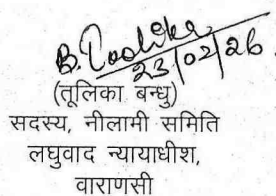 B. Toolika
23/02/26
(तूलिका बन्धु)
सदस्य, नीलामी समिति
लघुवाद न्यायाधीश,
वाराणसी